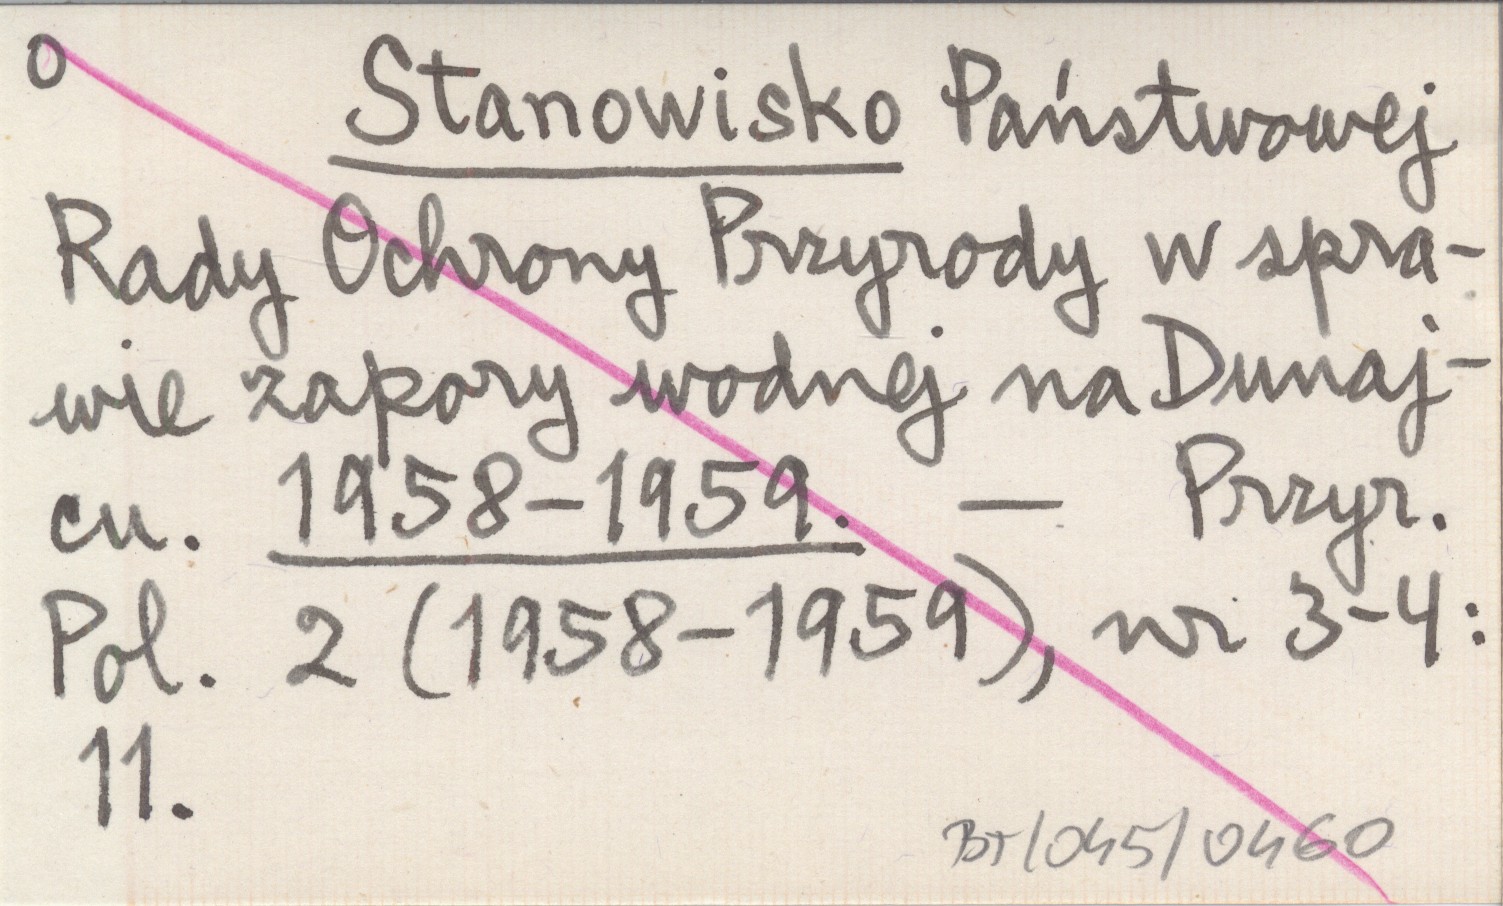 o Stanowisko Państwowej
Rady Ochrony Przyrody w spra-
wie zapory wodnej na Dunaj-
cu. 1958-1959. — Przyr.
Pol. 2 (1958-1959), nr 3-4:
11.
BT/045/0460